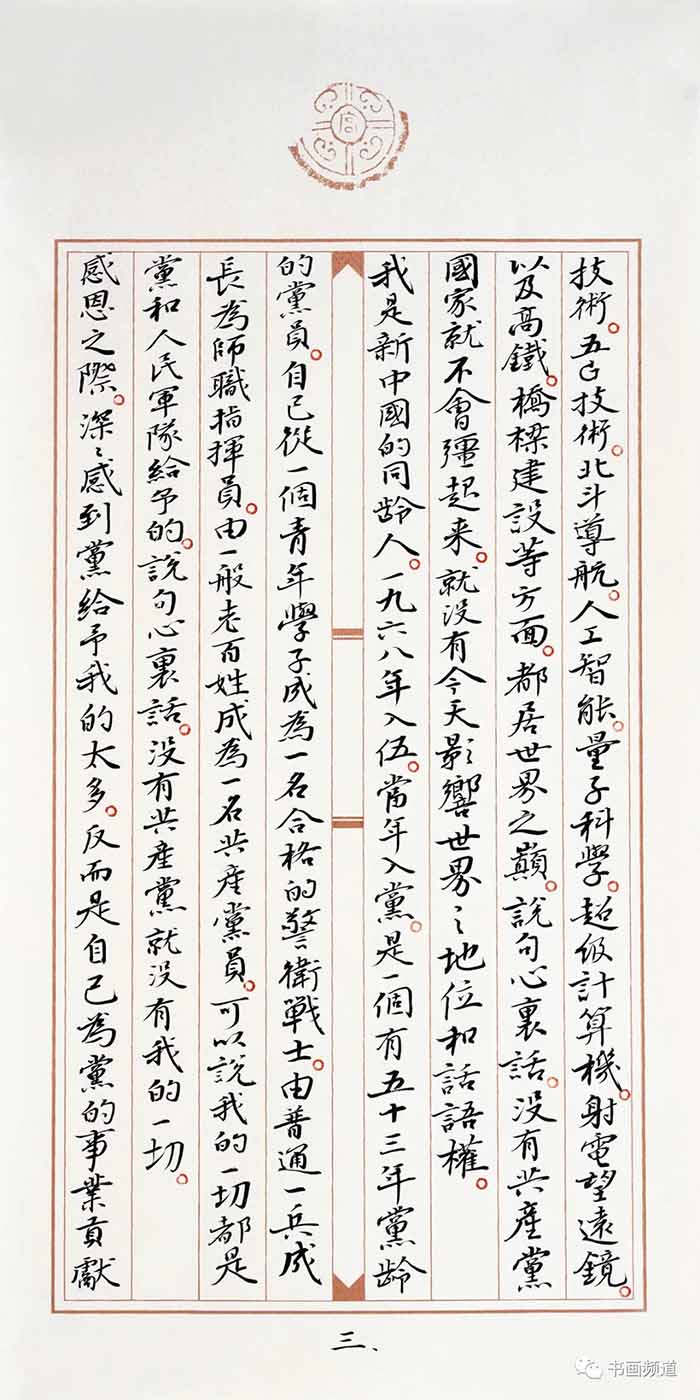 技術。五G技術。北斗導航。人工智能。量子科學。超级計算機。射電望遠鏡。
以及高鐵。橋樑建設等方面。都居世界之巔。説句心裏話。没有共產黨
國家就不會彊起来。就没有今天影響世界之地位和話語權。
我是新中國的同齡人。一九六八年入伍。當年入黨。是一個有五十三年黨龄
的黨員。自己從一個青年學子成為一名合格的警衛戰士。由普通一兵成
長為師職指揮員。由一般老百姓成為一名共產黨員。可以説我的一切都是
黨和人民軍隊給予的。説句心裏話。没有共產黨就没有我的一切。
感恩之際。深〻感到黨給予我的太多。反而是自己為黨的事業貢獻
三、
书画频道